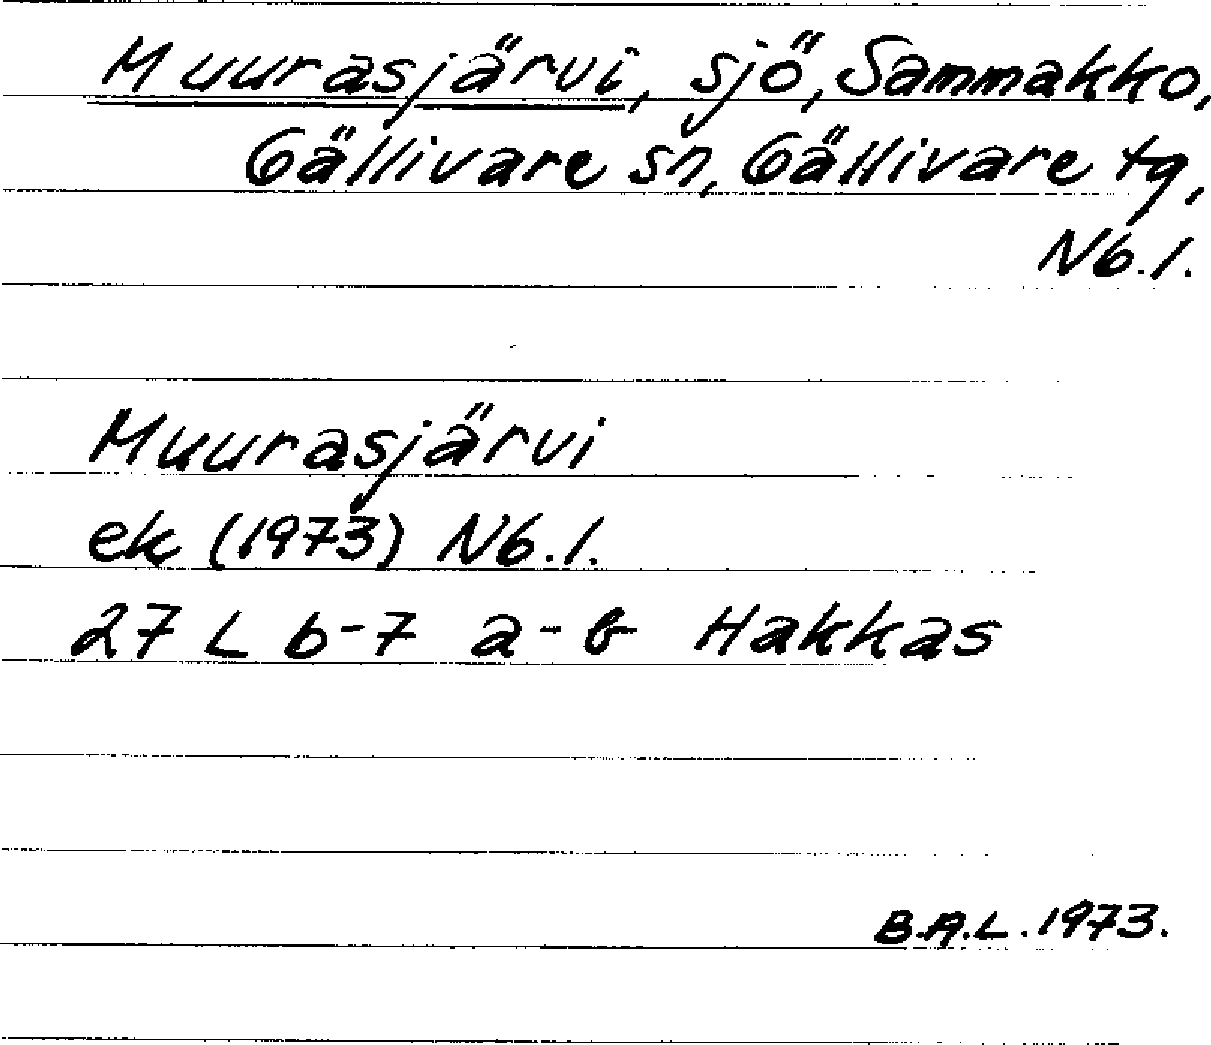 Muurasjärvi, sjö, Sammakko,
Gällivare sn, Gällivare tg,
Nb.l.
Muurasjärvi
ek (1973) Nb.l.
27 L 6-7 a-b Hakkas
B.A.L. 1973.